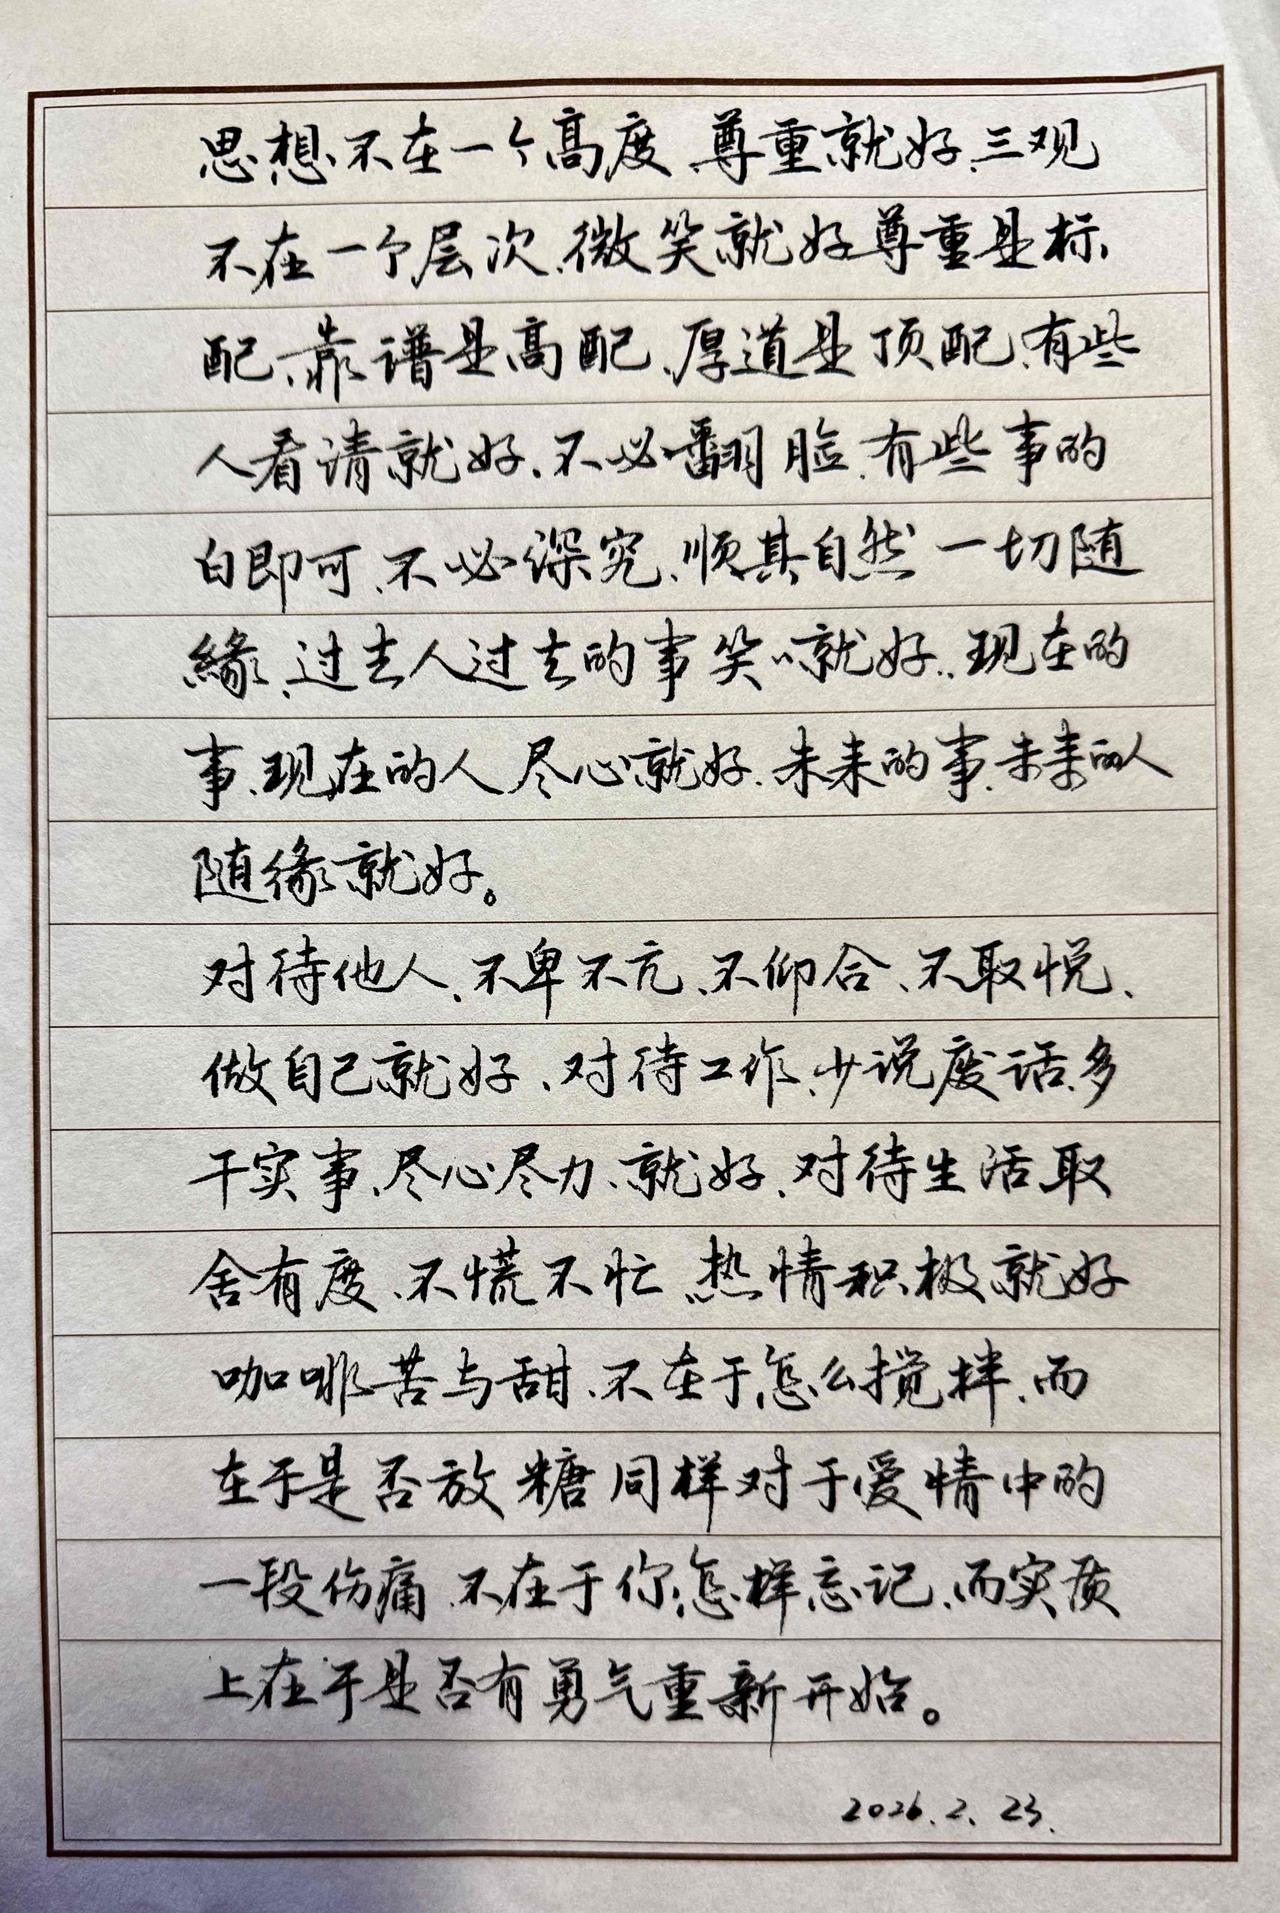 思想不在一个高度、尊重就好、三观
不在一个层次、微笑就好尊重是标
配、靠谱是高配、厚道是顶配、有些
人看请就好、不必翻脸、有些事的
白即可、不必深究、顺其自然一切随
緣、过去人过去的事笑笑就好、现在的
事、现在的人尽心就好、未来的事、未来的人
随缘就好。
对待他人、不卑不亢、不仰合、不取悦、
做自己就好、对待工作、少说废话、多
干实事、尽心尽力、就好、对待生活取
舍有度、不慌不忙、热情积极就好
咖啡苦与甜、不在于怎么搅拌、而
在于是否放糖同样对于爱情中的
一段伤痛、不在于你怎样忘记、而实质
上在于是否有勇气重新开始。
2026.2.23.